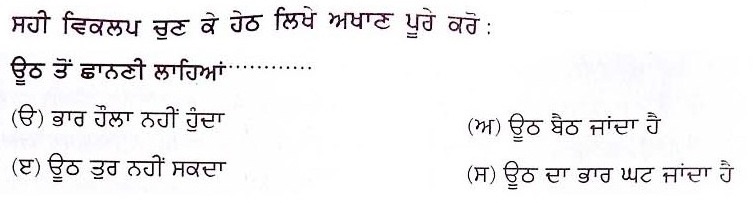 ਸਹੀ ਵਿਕਲਪ ਚੁਣ ਕੇ ਹੇਠ ਲਿਖੇ ਅਖਾਣ ਪੂਰੇ ਕਰੋ :
ਊਠ ਤੋਂ ਛਾਨਣੀ ਲਾਹਿਆਂ............
(ੳ) ਭਾਰ ਹੌਲਾ ਨਹੀਂ ਹੁੰਦਾ
(ਅ) ਊਠ ਬੈਠ ਜਾਂਦਾ ਹੈ
(ੲ) ਊਠ ਤੁਰ ਨਹੀਂ ਸਕਦਾ
(ਸ) ਊਠ ਦਾ ਭਾਰ ਘਟ ਜਾਂਦਾ ਹੈ